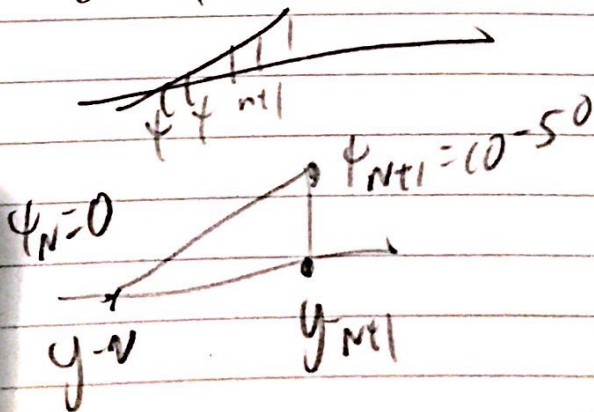 ψ ψ n+1
ψN+1 = 10^-50
ψN=0
y-N
yN+1